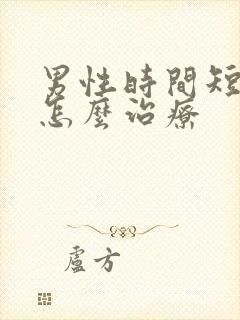 男性時間短
怎麼治療
盧方